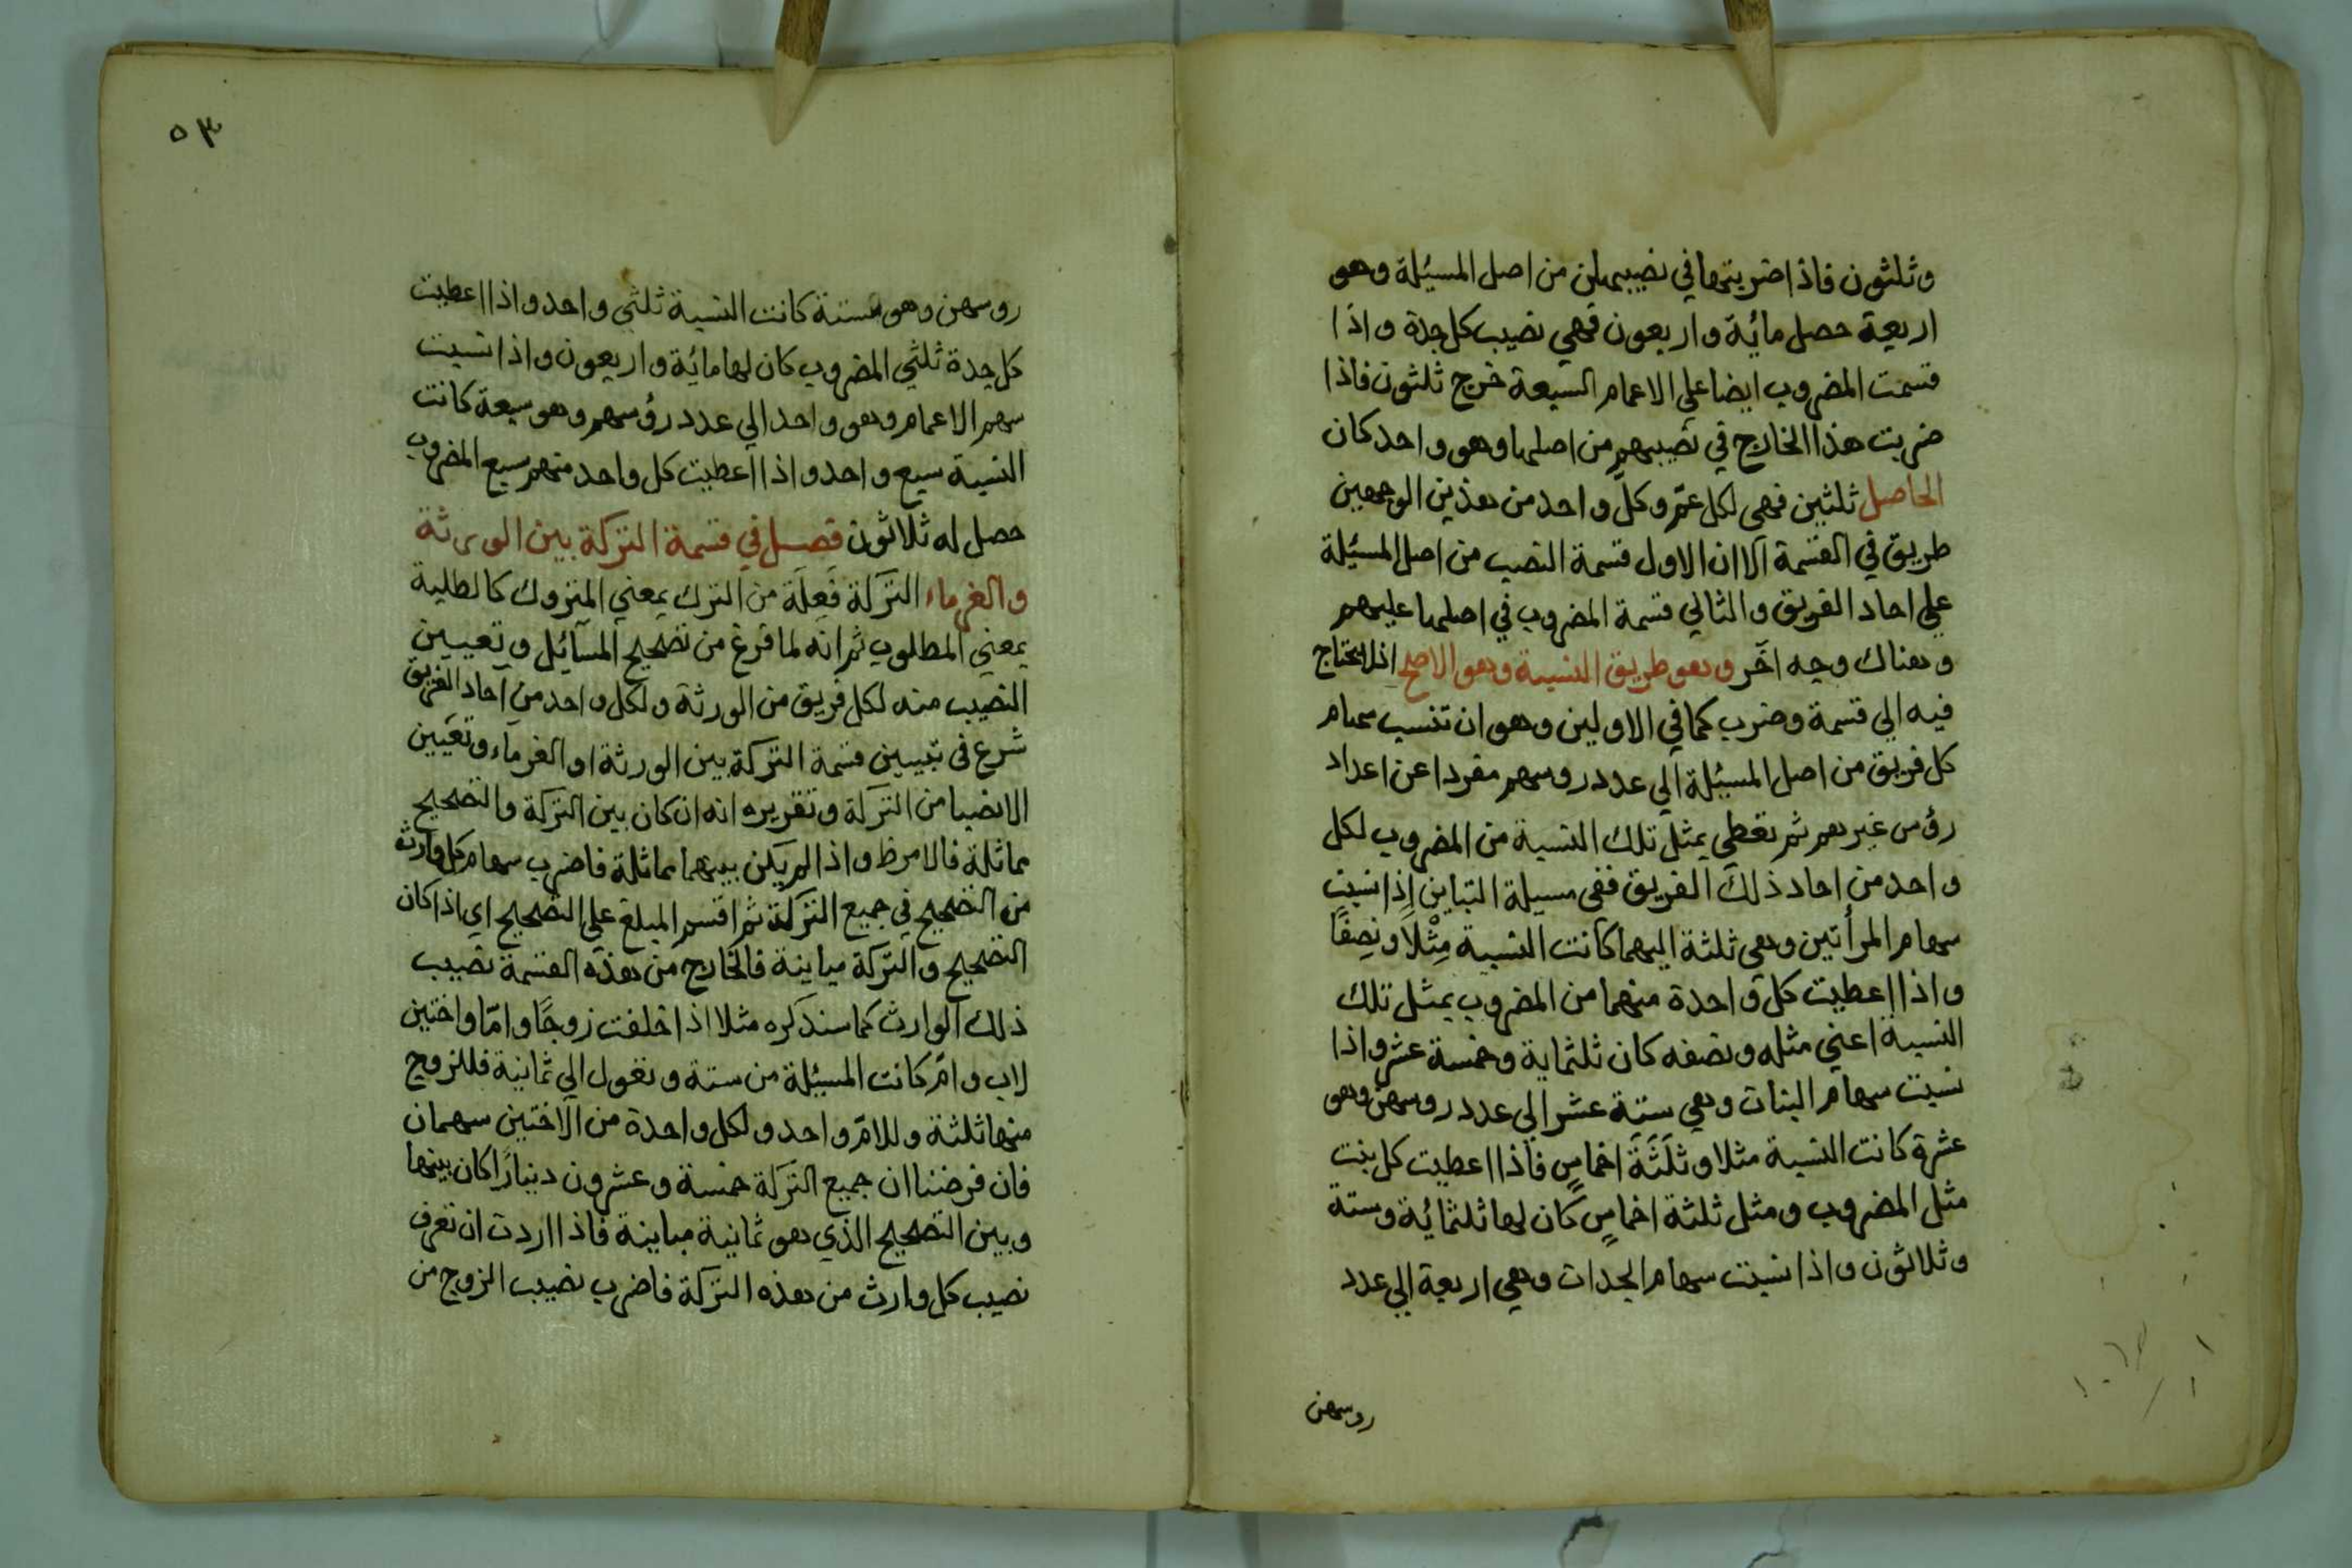 وثلثون فاذا ضربتها في نصيبهن من اصل المسئلة وهو
اربعة حصل مائة واربعون فهي نصيب كل جدة واذا
قسمت المضروب ايضا علي الاعمام السبعة خرج ثلثون فاذا
ضربت هذا الخارج في نصيبهم من اصلها وهو واحد كان
الحاصل ثلثين فهي لكل عمّ وكلّ واحد من هذين الوجهين
طريق في القسمة الا ان الاول قسمة النصيب من اصل المسئلة
علي احاد الفريق والثاني قسمة المضروب في اصلها عليهم
وهناك وجه اخر وهو طريق النسبة وهو الاصلح اذ لا يحتاج
فيه الي قسمة وضرب كما في الاولين وهو ان تنسب سهام
كل فريق من اصل المسئلة الي عدد روسهم مفردا عن اعداد
رؤس غيرهم ثم تعطي بمثل تلك النسبة من المضروب لكل
واحد من احاد ذلك الفريق ففي مسيلة التباين اذا نسبت
سهام المرأتين وهي ثلثة اليهما كانت النسبة مِثْلًا ونِصفًا
واذا اعطيت كل واحدة منهما من المضروب بمثل تلك
النسبة اعني مثله ونصفه كان ثلثماية وخمسة عشر واذا
نسبت سهام البنات وهي ستة عشر الي عدد روسهن وهو
عشرة كانت النسبة مثلا وثَلَثَةَ اخماسٍ فاذا اعطيت كل بنت
مثل المضروب ومثل ثلثة اخماسٍ كان لها ثلثمائة وستة
وثلاثون واذا نسبت سهام الجدات وهي اربعة الي عدد
روسهن
٥٣
روسهن وهو ستة كانت النسبة ثلثي واحد واذا اعطيت
كل جدة ثلثي المضروب كان لها مائة واربعون واذا نسبت
سهم الاعمام وهو واحد الي عدد رؤسهم وهو سبعة كانت
النسبة سبع واحد واذا اعطيت كل واحد منهم سبع المضروب
حصل له ثلاثون فصل في قسمة التركة بين الورثة
والغرماء التَرَكة فَعِلَة من الترك بمعني المتروك كالطلبة
بمعني المطلوب ثم انه لما فرغ من تصحيح المسائل وتعيين
النصيب منه لكل فريق من الورثة ولكل واحد من احاد الفريق
شرع في تبيين قسمة التركة بين الورثة او الغرماء وتعيين
الانصبا من التركة وتقريره انه ان كان بين التركة والتصحيح
مماثلة فالامر ظ واذا لم يكن بينهما مماثلة فاضرب سهام كل وارث
من التصحيح في جميع التركة ثم اقسم المبلغ علي التصحيح اي اذا كان
التصحيح والتركة مباينة فالخارج من هذه القسمة نصيب
ذلك الوارث كما سنذكره مثلا اذا خلفت زوجًا وامّا واختين
لاب وامّ كانت المسئلة من ستة وتعول الي ثمانية فللزوج
منها ثلثة وللامّ واحد ولكل واحدة من الاختين سهمان
فان فرضنا ان جميع التركة خمسة وعشرون دينارًا كان بينها
وبين التصحيح الذي هو ثمانية مباينة فاذا اردت ان تعرف
نصيب كل وارث من هذه التركة فاضرب نصيب الزوج من